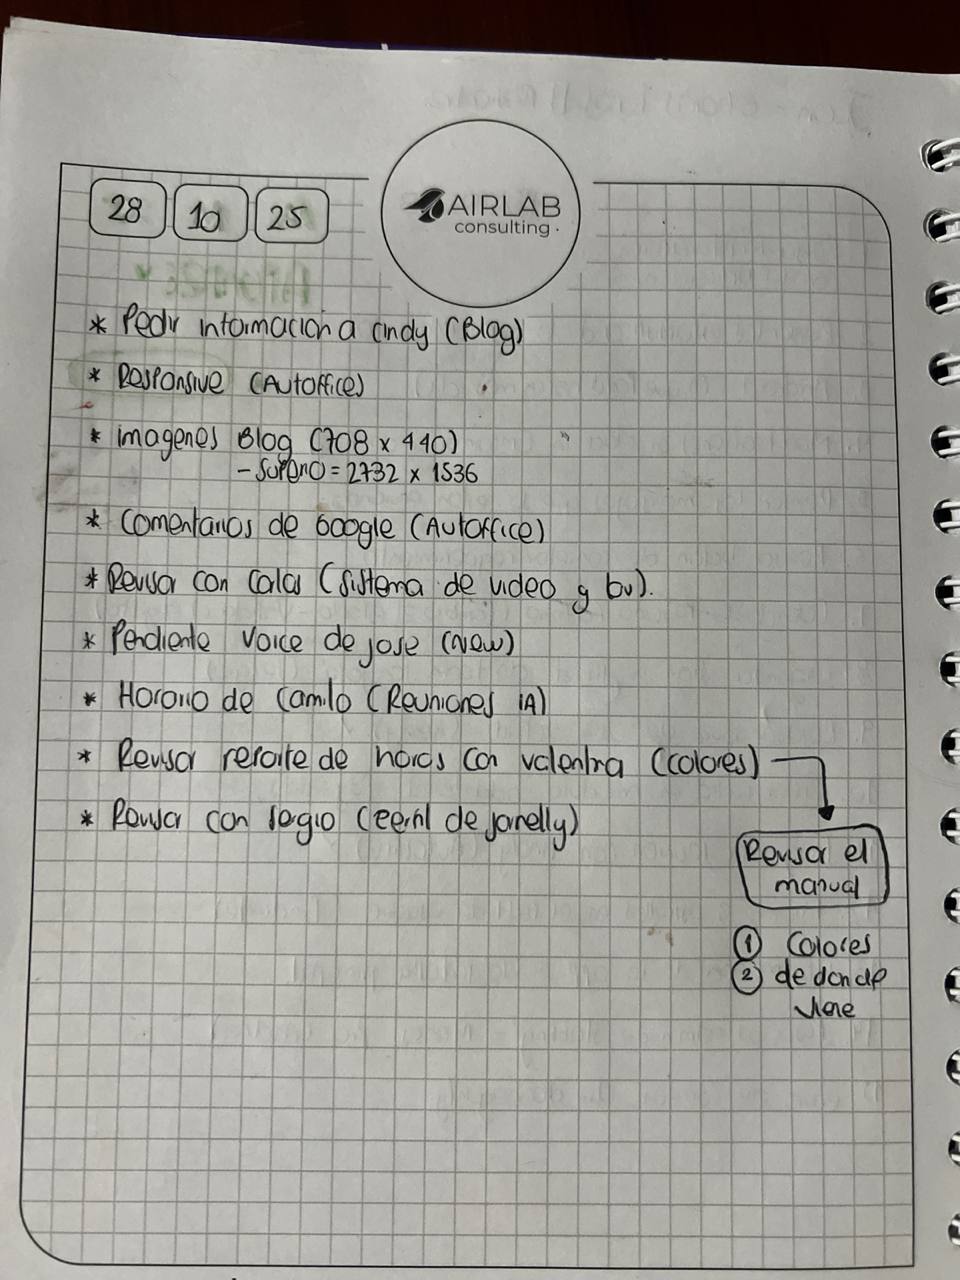 28 10 25
AIRLAB
consulting
* Pedir informacion a cindy (Blog)
* Responsive (Autoffice)
* imagenes Blog (708 x 440)
- = 2732 x 1536
* Comentarios de Google (Autoffice)
* Revisar con (sistema de video y bu).
* Pendiente voice de jose (New)
* Horario de Camilo (Reuniones iA)
* Revisar reporte de horas con valentina (colores)
* Revisar con sergio (perfil de)
Revisar el
manual
1 Colores
2 de donde
viene